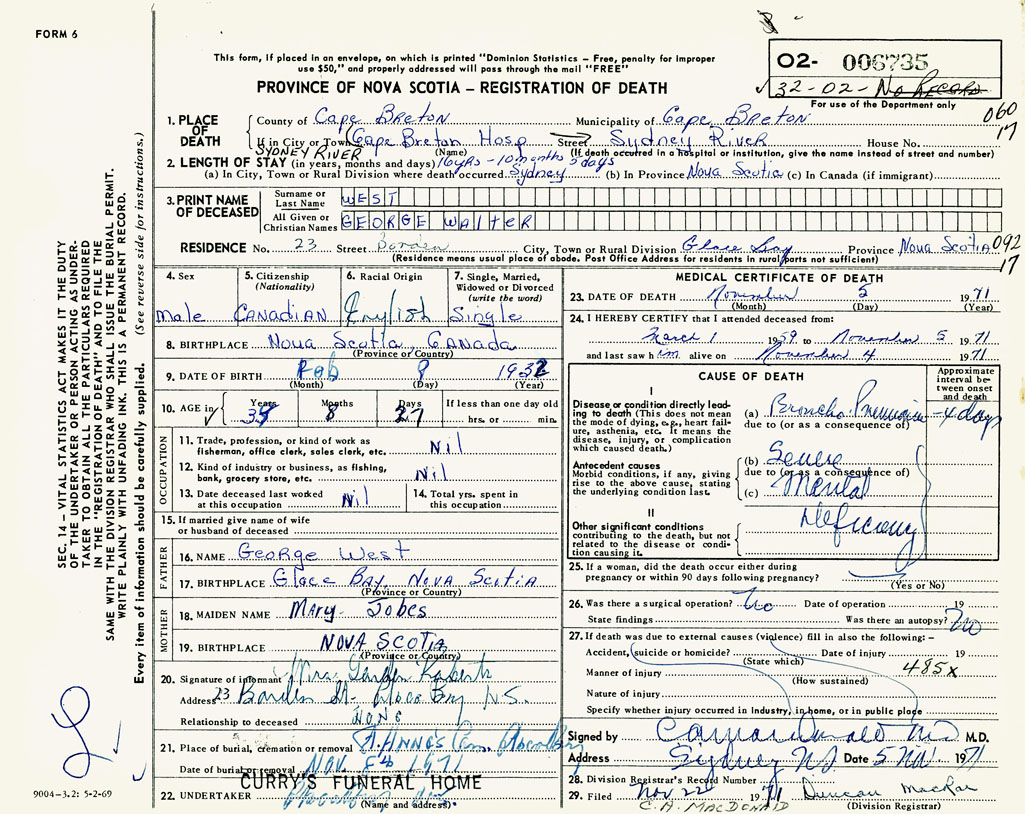 FORM 6
This form, if placed in an envelope, on which is printed "Dominion Statistics – Free, penalty for improper
use $50," and properly addressed will pass through the mail "FREE"
PROVINCE OF NOVA SCOTIA – REGISTRATION OF DEATH
O2- 006735
32-02- No Record
For use of the Department only
060
17
1. PLACE OF DEATH
County of Cape Breton Municipality of Cape Breton
If in City or Town Cape Breton Hosp Street Sydney River House No.
SYDNEY RIVER (Name) (If death occurred in a hospital or institution, give the name instead of street and number)
2. LENGTH OF STAY (in years, months and days) 16yrs - 10 months 5 days
(a) In City, Town or Rural Division where death occurred Sydney (b) In Province Nova Scotia (c) In Canada (if immigrant)
3. PRINT NAME OF DECEASED
Surname or Last Name WEST
All Given or Christian Names GEORGE WALTER
RESIDENCE No. 23 Street Borden City, Town or Rural Division Glace Bay Province Nova Scotia 092
(Residence means usual place of abode. Post Office Address for residents in rural parts not sufficient) 17
4. Sex 5. Citizenship (Nationality) 6. Racial Origin 7. Single, Married, Widowed or Divorced (write the word)
Male CANADIAN English Single
8. BIRTHPLACE Nova Scotia, CANADA
(Province or Country)
9. DATE OF BIRTH Feb 9 1932
(Month) (Day) (Year)
10. AGE in Years Months Days If less than one day old
39 8 27 hrs. or min.
OCCUPATION
11. Trade, profession, or kind of work as
fisherman, office clerk, sales clerk, etc. Nil
12. Kind of industry or business, as fishing,
bank, grocery store, etc. Nil
13. Date deceased last worked
at this occupation Nil
14. Total yrs. spent in
this occupation
15. If married give name of wife
or husband of deceased
FATHER
16. NAME George West
17. BIRTHPLACE Glace Bay, Nova Scotia
(Province or Country)
MOTHER
18. MAIDEN NAME Mary Jobes
19. BIRTHPLACE NOVA SCOTIA
(Province or Country)
20. Signature of informant Mrs. Gordon Roberts
Address 23 Borden St. Glace Bay N.S.
Relationship to deceased NONE
21. Place of burial, cremation or removal St. Anne's Cem. Glace Bay
Date of burial or removal Nov. 1971
CURRY'S FUNERAL HOME
22. UNDERTAKER
(Name and address)
MEDICAL CERTIFICATE OF DEATH
23. DATE OF DEATH November 5 1971
(Month) (Day) (Year)
24. I HEREBY CERTIFY that I attended deceased from:
March 1 1959 to November 5 1971
and last saw him alive on November 4 1971
CAUSE OF DEATH
Approximate
interval be-
tween onset
and death
I
Disease or condition directly lead-
ing to death (This does not mean
the mode of dying, e.g., heart fail-
ure, asthenia, etc. It means the
disease, injury, or complication
which caused death.)
(a) Broncho Pneumonia - 4 days
due to (or as a consequence of)
Antecedent causes
Morbid conditions, if any, giving
rise to the above cause, stating
the underlying condition last.
(b) Severe
due to (or as a consequence of)
(c) Mental
Deficiency
II
Other significant conditions
contributing to the death, but not
related to the disease or condi-
tion causing it.
25. If a woman, did the death occur either during
pregnancy or within 90 days following pregnancy?
(Yes or No)
26. Was there a surgical operation? No Date of operation 19
State findings Was there an autopsy? No
27. If death was due to external causes (violence) fill in also the following: –
Accident, suicide or homicide? Date of injury 19
(State which)
Manner of injury 485X
(How sustained)
Nature of injury
Specify whether injury occurred in industry, in home, or in public place
Signed by M.D.
Address Sydney NS Date 5 Nov 1971
28. Division Registrar's Record Number
29. Filed Nov 22 1971 Duncan MacRae
C. A. MACDONALD (Division Registrar)
SEC. 14 – VITAL STATISTICS ACT MAKES IT THE DUTY
OF THE UNDERTAKER OR PERSON ACTING AS UNDER-
TAKER TO OBTAIN ALL THE PARTICULARS REQUIRED
IN THE "REGISTRATION OF DEATH" AND TO FILE THE
SAME WITH THE DIVISION REGISTRAR WHO SHALL ISSUE THE BURIAL PERMIT.
WRITE PLAINLY WITH UNFADING INK. THIS IS A PERMANENT RECORD.
Every item of information should be carefully supplied. (See reverse side for instructions.)
9004-3.2: 5-2-69